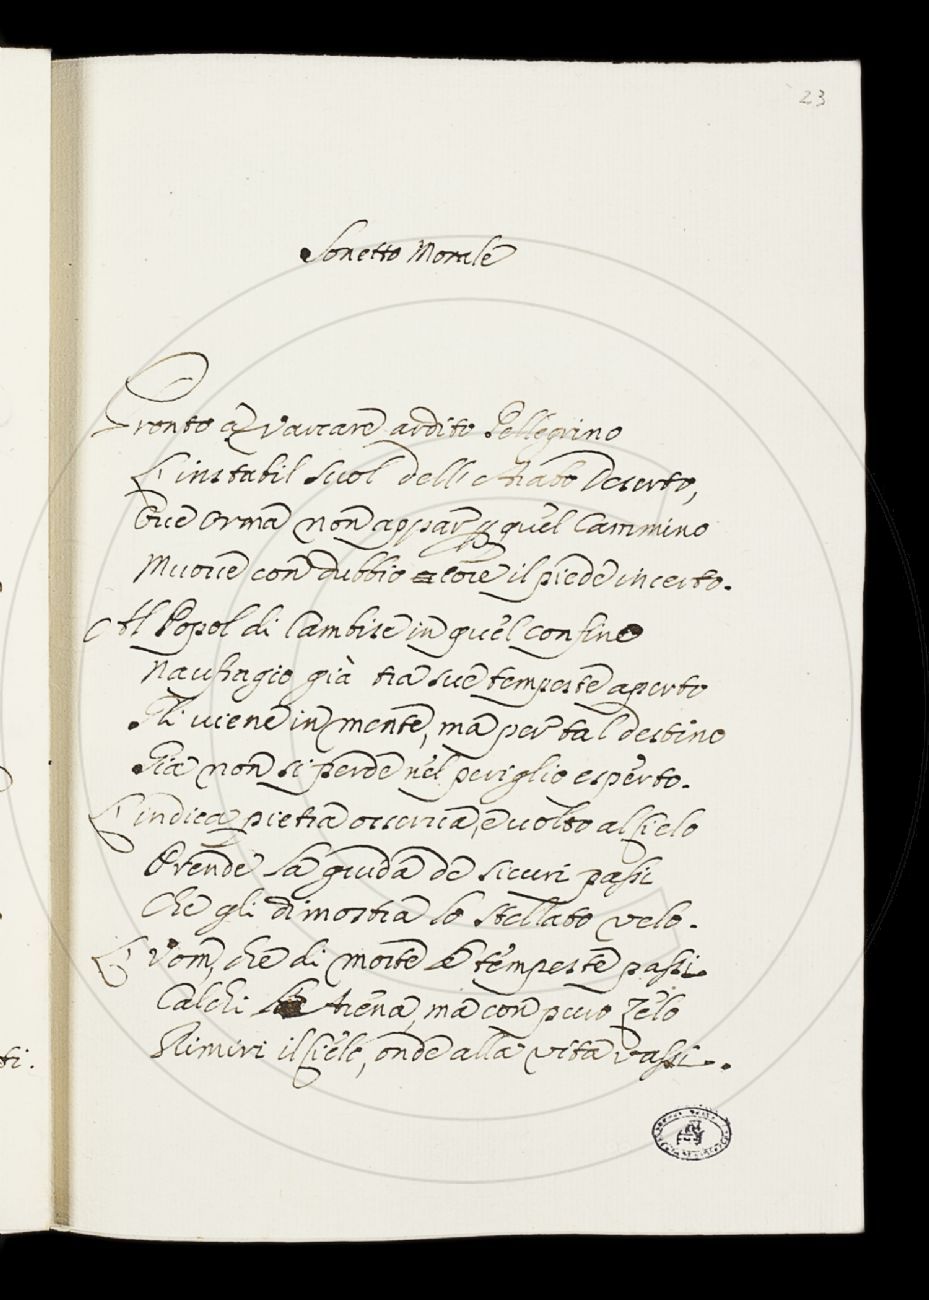 23
Sonetto Morale
Pronto à Varcare ardito Pellegrino
L'instabil suol dell'Arabo Deserto,
Ove Orma non appar p quel Cammino
Muove con dubbio core il piede incerto.
Al Popol di Cambise in quel confine
Naufragio già tra sue tempeste aperto
Gli viene in mente, ma per tal destino
Già non si perde nel periglio esperto.
L'indica pietra osserva, e volto al Cielo
Prende la guida de sicuri passi
Che gli dimostra lo stellato velo.
L'Vom, che di morte le tempeste passi
Calchi Arena, ma con puro Zelo
Rimiri il Ciel, onde alla vita vassi.
ti.